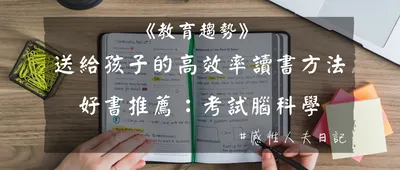 《教育趨勢》
送給孩子的高效率讀書方法
好書推薦：考試腦科學
#感性人夫日記